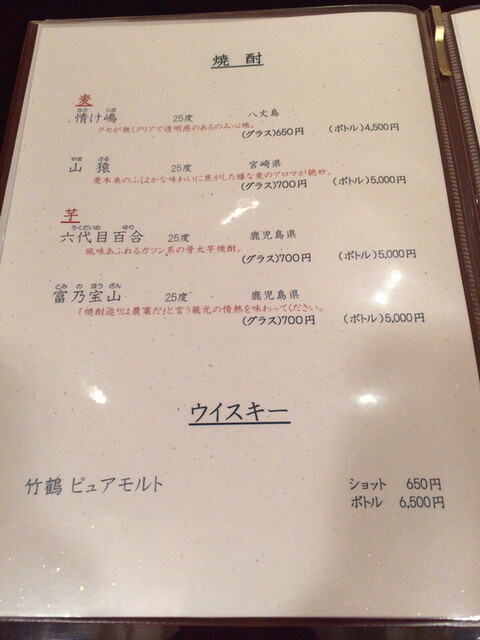 焼酎
麦
なさ しま
情け嶋 25度 八丈島
クセが無くクリアで透明感のあるのみ心地。
(グラス)650円 (ボトル)4,500円
やま さる
山猿 25度 宮崎県
麦本来のふくよかな味わいに焦がした様な麦のアロマが絶妙。
(グラス)700円 (ボトル)5,000円
芋
ろくだいめ ゆり
六代目百合 25度 鹿児島県
風味あふれるガツン系の骨太芋焼酎。
(グラス)700円 (ボトル)5,000円
とみ の ほう ざん
富乃宝山 25度 鹿児島県
「焼酎造りは農業だ」と言う蔵元の情熱を味わってください。
(グラス)700円 (ボトル)5,000円
ウイスキー
竹鶴 ピュアモルト ショット 650円
ボトル 6,500円